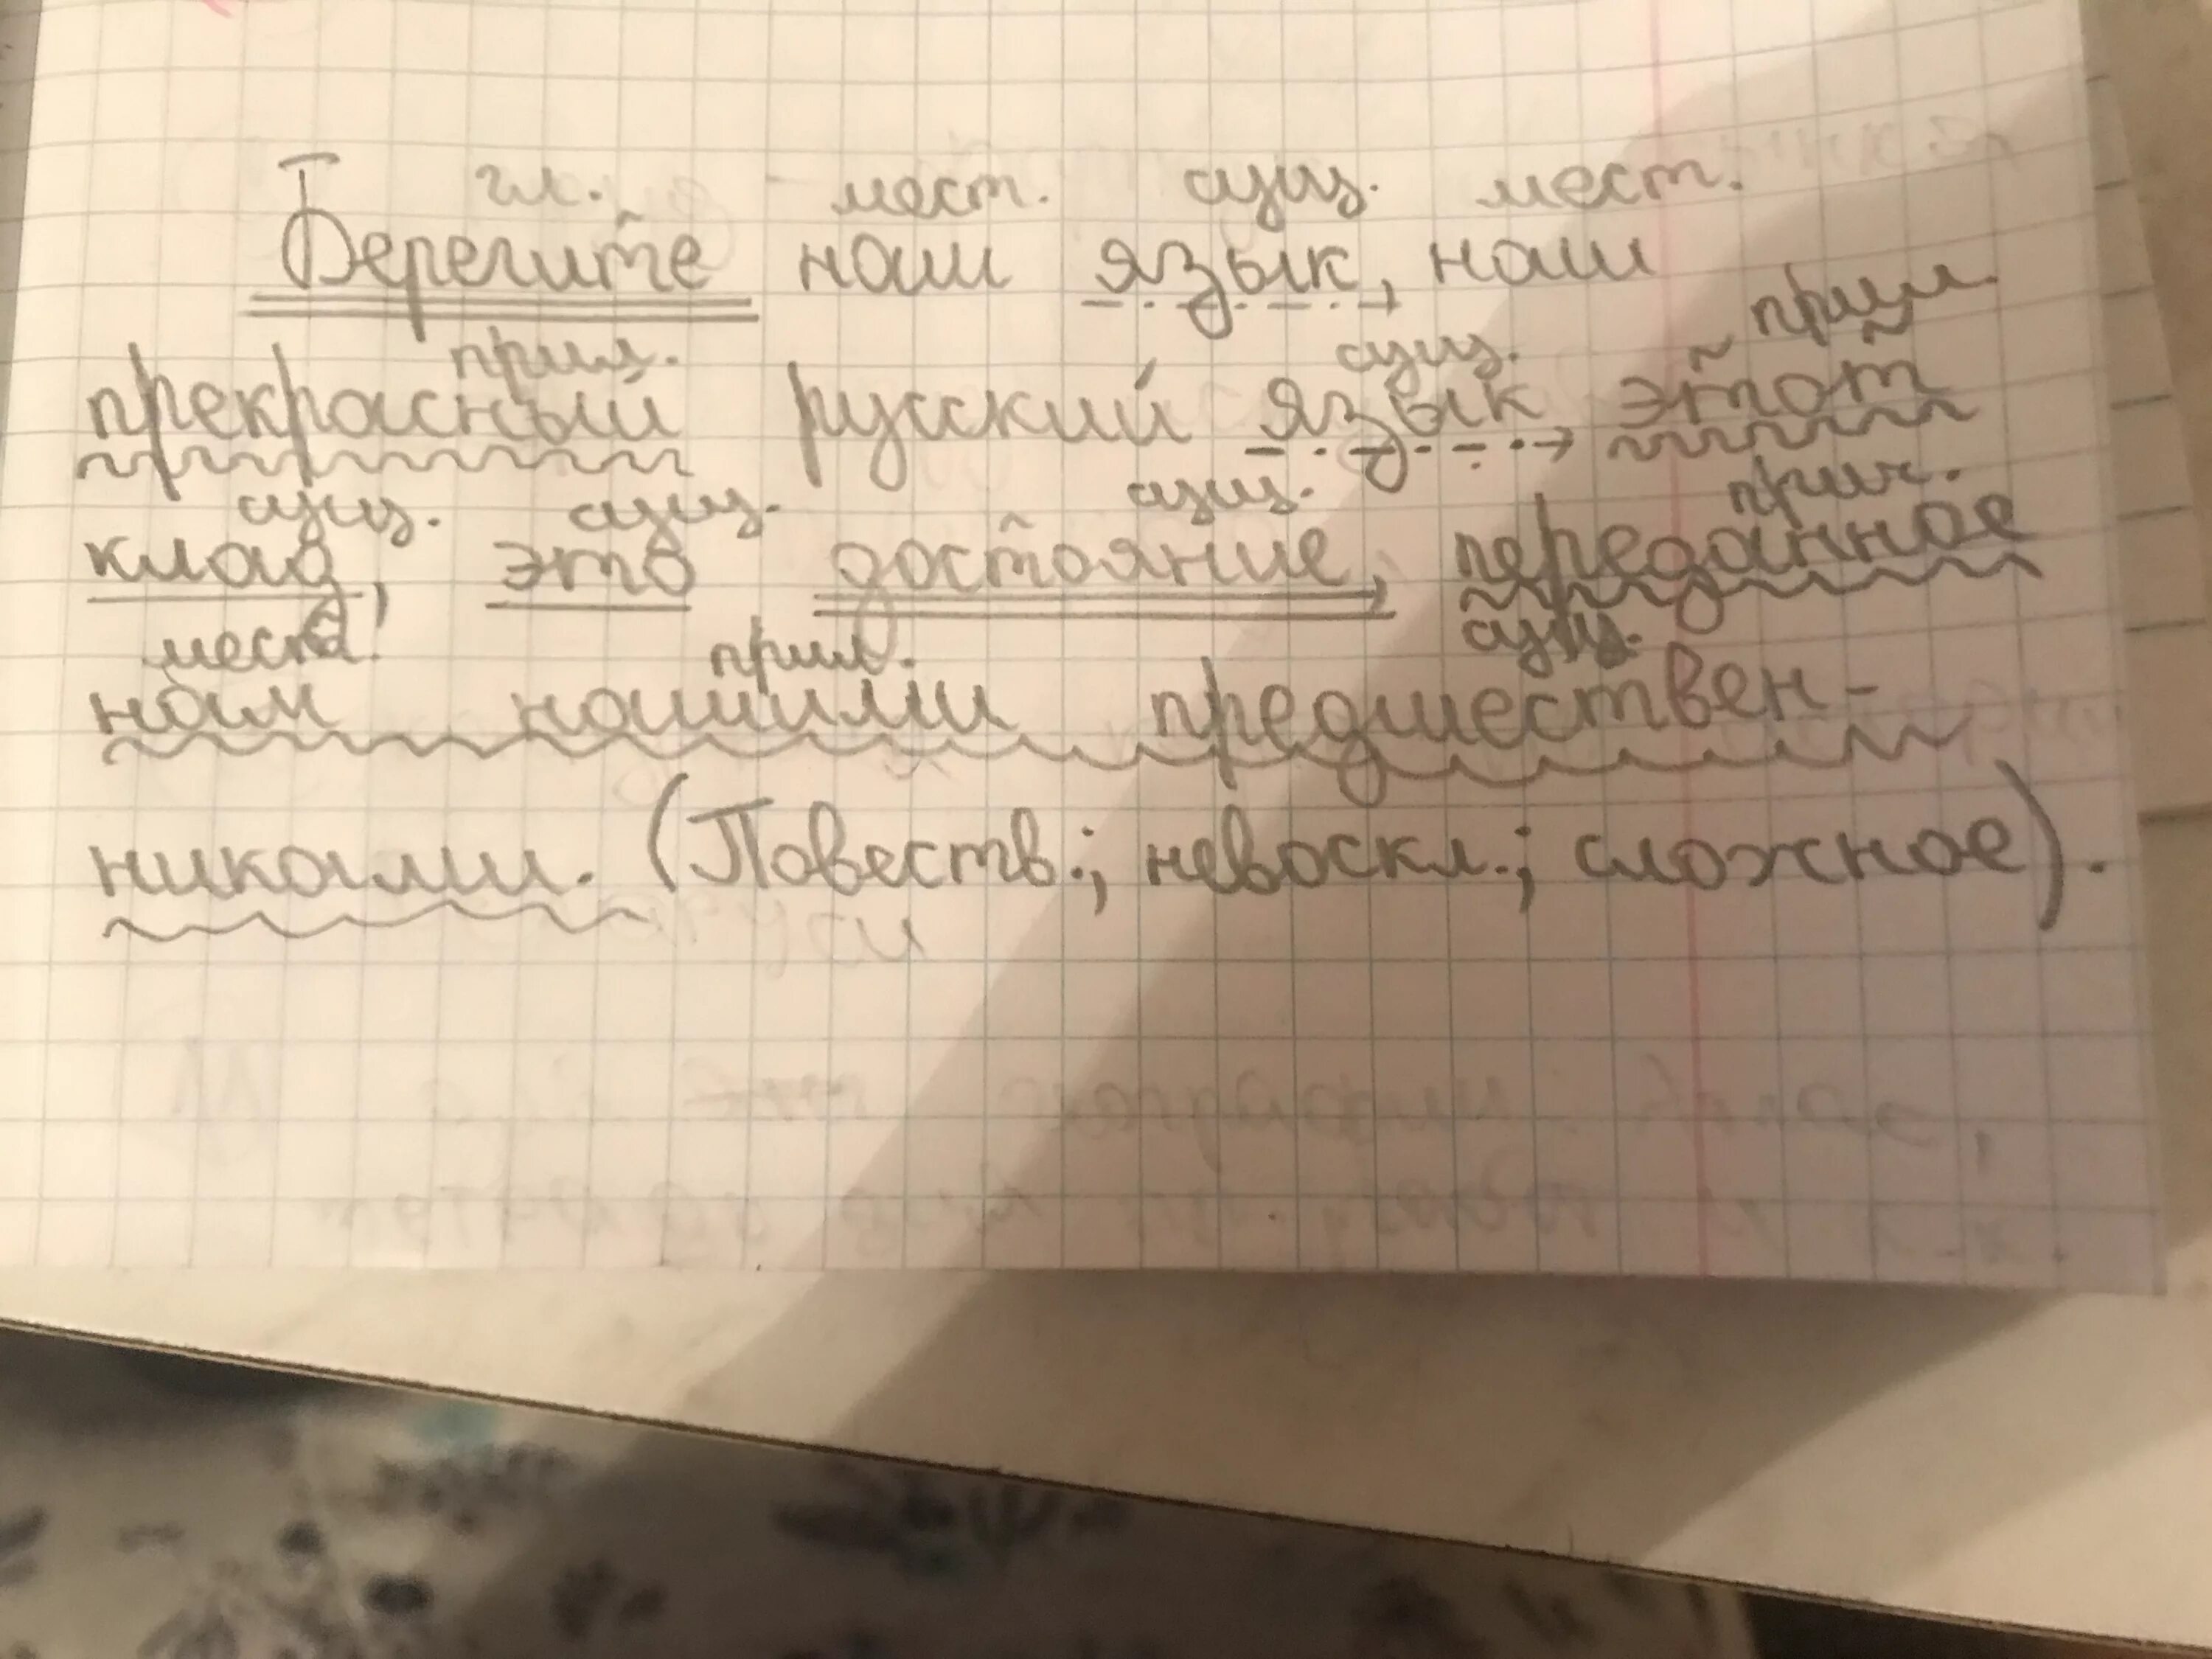 гл. мест. сущ. мест.
Берегите наш язык, наш
прил. сущ. прил.
прекрасный русский язык этот
сущ. сущ. сущ. прич.
клад, это достояние, переданное
мест. прил. сущ.
нам нашими предшествен-
никами. (Повеств.; невоскл.; сложное).